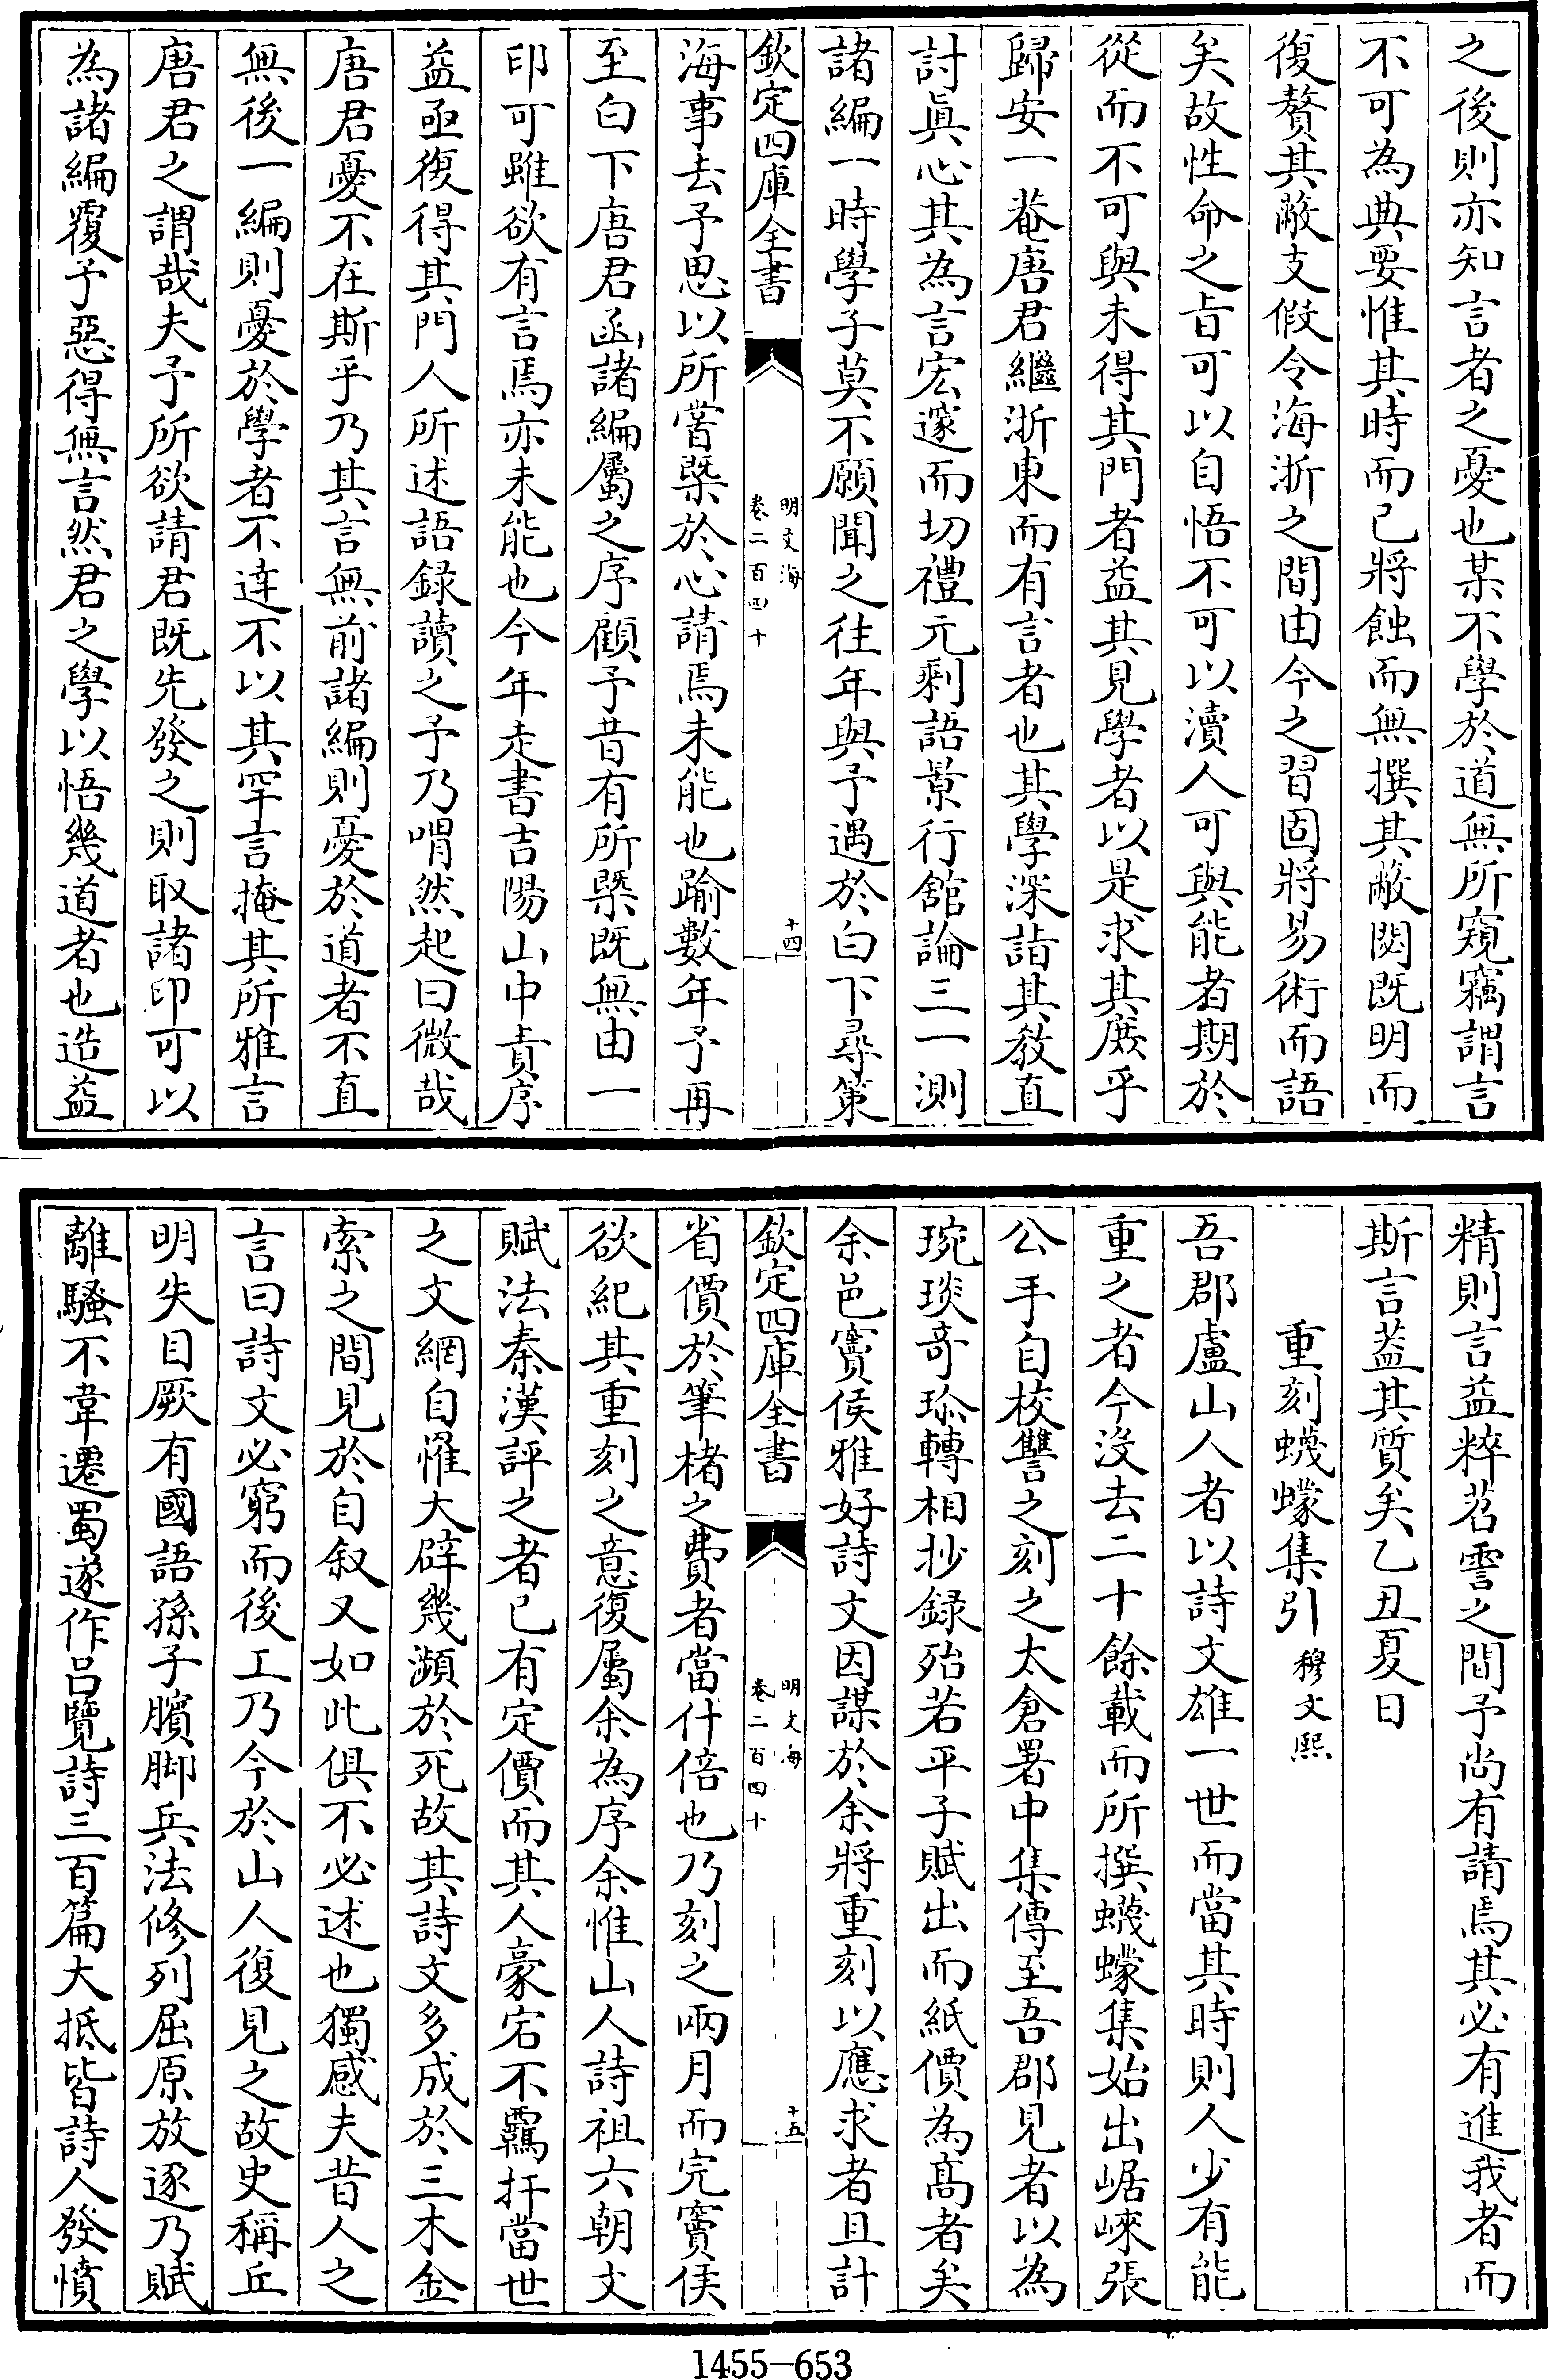 之後則亦知言者之憂也某不學於道無所窺竊謂言
不可為典要惟其時而已將蝕而無撰其敝閡既明而
復贅其敝支假令海浙之間由今之習固將易術而語
矣故性命之旨可以自悟不可以瀆人可與能者期於
從而不可與未得其門者益其見學者以是求其廢乎
歸安一菴唐君繼浙東而有言者也其學深詣其教直
討眞心其為言宏邃而切禮元剩語景行舘論三一測
諸編一時學子莫不願聞之往年與予遇於白下尋策
欽定四庫全書
明文海
卷二百四十
十四
海事去予思以所嘗槩於心請焉未能也踰數年予再
至白下唐君函諸編屬之序顧予昔有所槩既無由一
印可雖欲有言焉亦未能也今年走書吉陽山中責序
益亟復得其門人所述語録讀之予乃喟然起曰微哉
唐君憂不在斯乎乃其言無前諸編則憂於道者不直
無後一編則憂於學者不逹不以其罕言掩其所雅言
唐君之謂哉夫予所欲請君既先發之則取諸印可以
為諸編覆予惡得無言然君之學以悟幾道者也造益
精則言益粹苕霅之間予尚有請焉其必有進我者而
斯言葢其質矣乙丑夏日
重刻蠛蠓集引 穆文熙
吾郡盧山人者以詩文雄一世而當其時則人少有能
重之者今沒去二十餘載而所撰蠛蠓集始出崌崍張
公手自校讐之刻之太倉署中集傳至吾郡見者以為
琬琰奇珎轉相抄録殆若平子賦出而紙價為髙者矣
余邑竇侯雅好詩文因謀於余將重刻以應求者且計
欽定四庫全書
明文海
卷二百四十
十五
省價於筆楮之費者當什倍也乃刻之兩月而完竇侯
欲紀其重刻之意復屬余為序余惟山人詩祖六朝文
賦法秦漢評之者已有定價而其人豪宕不羈扞當世
之文網自罹大辟幾瀕於死故其詩文多成於三木金
索之間見於自叙又如此俱不必述也獨感夫昔人之
言曰詩文必窮而後工乃今於山人復見之故史稱丘
明失目厥有國語孫子臏脚兵法修列屈原放逐乃賦
離騷不韋遷蜀遂作吕覽詩三百篇大抵皆詩人發憤
1455-653